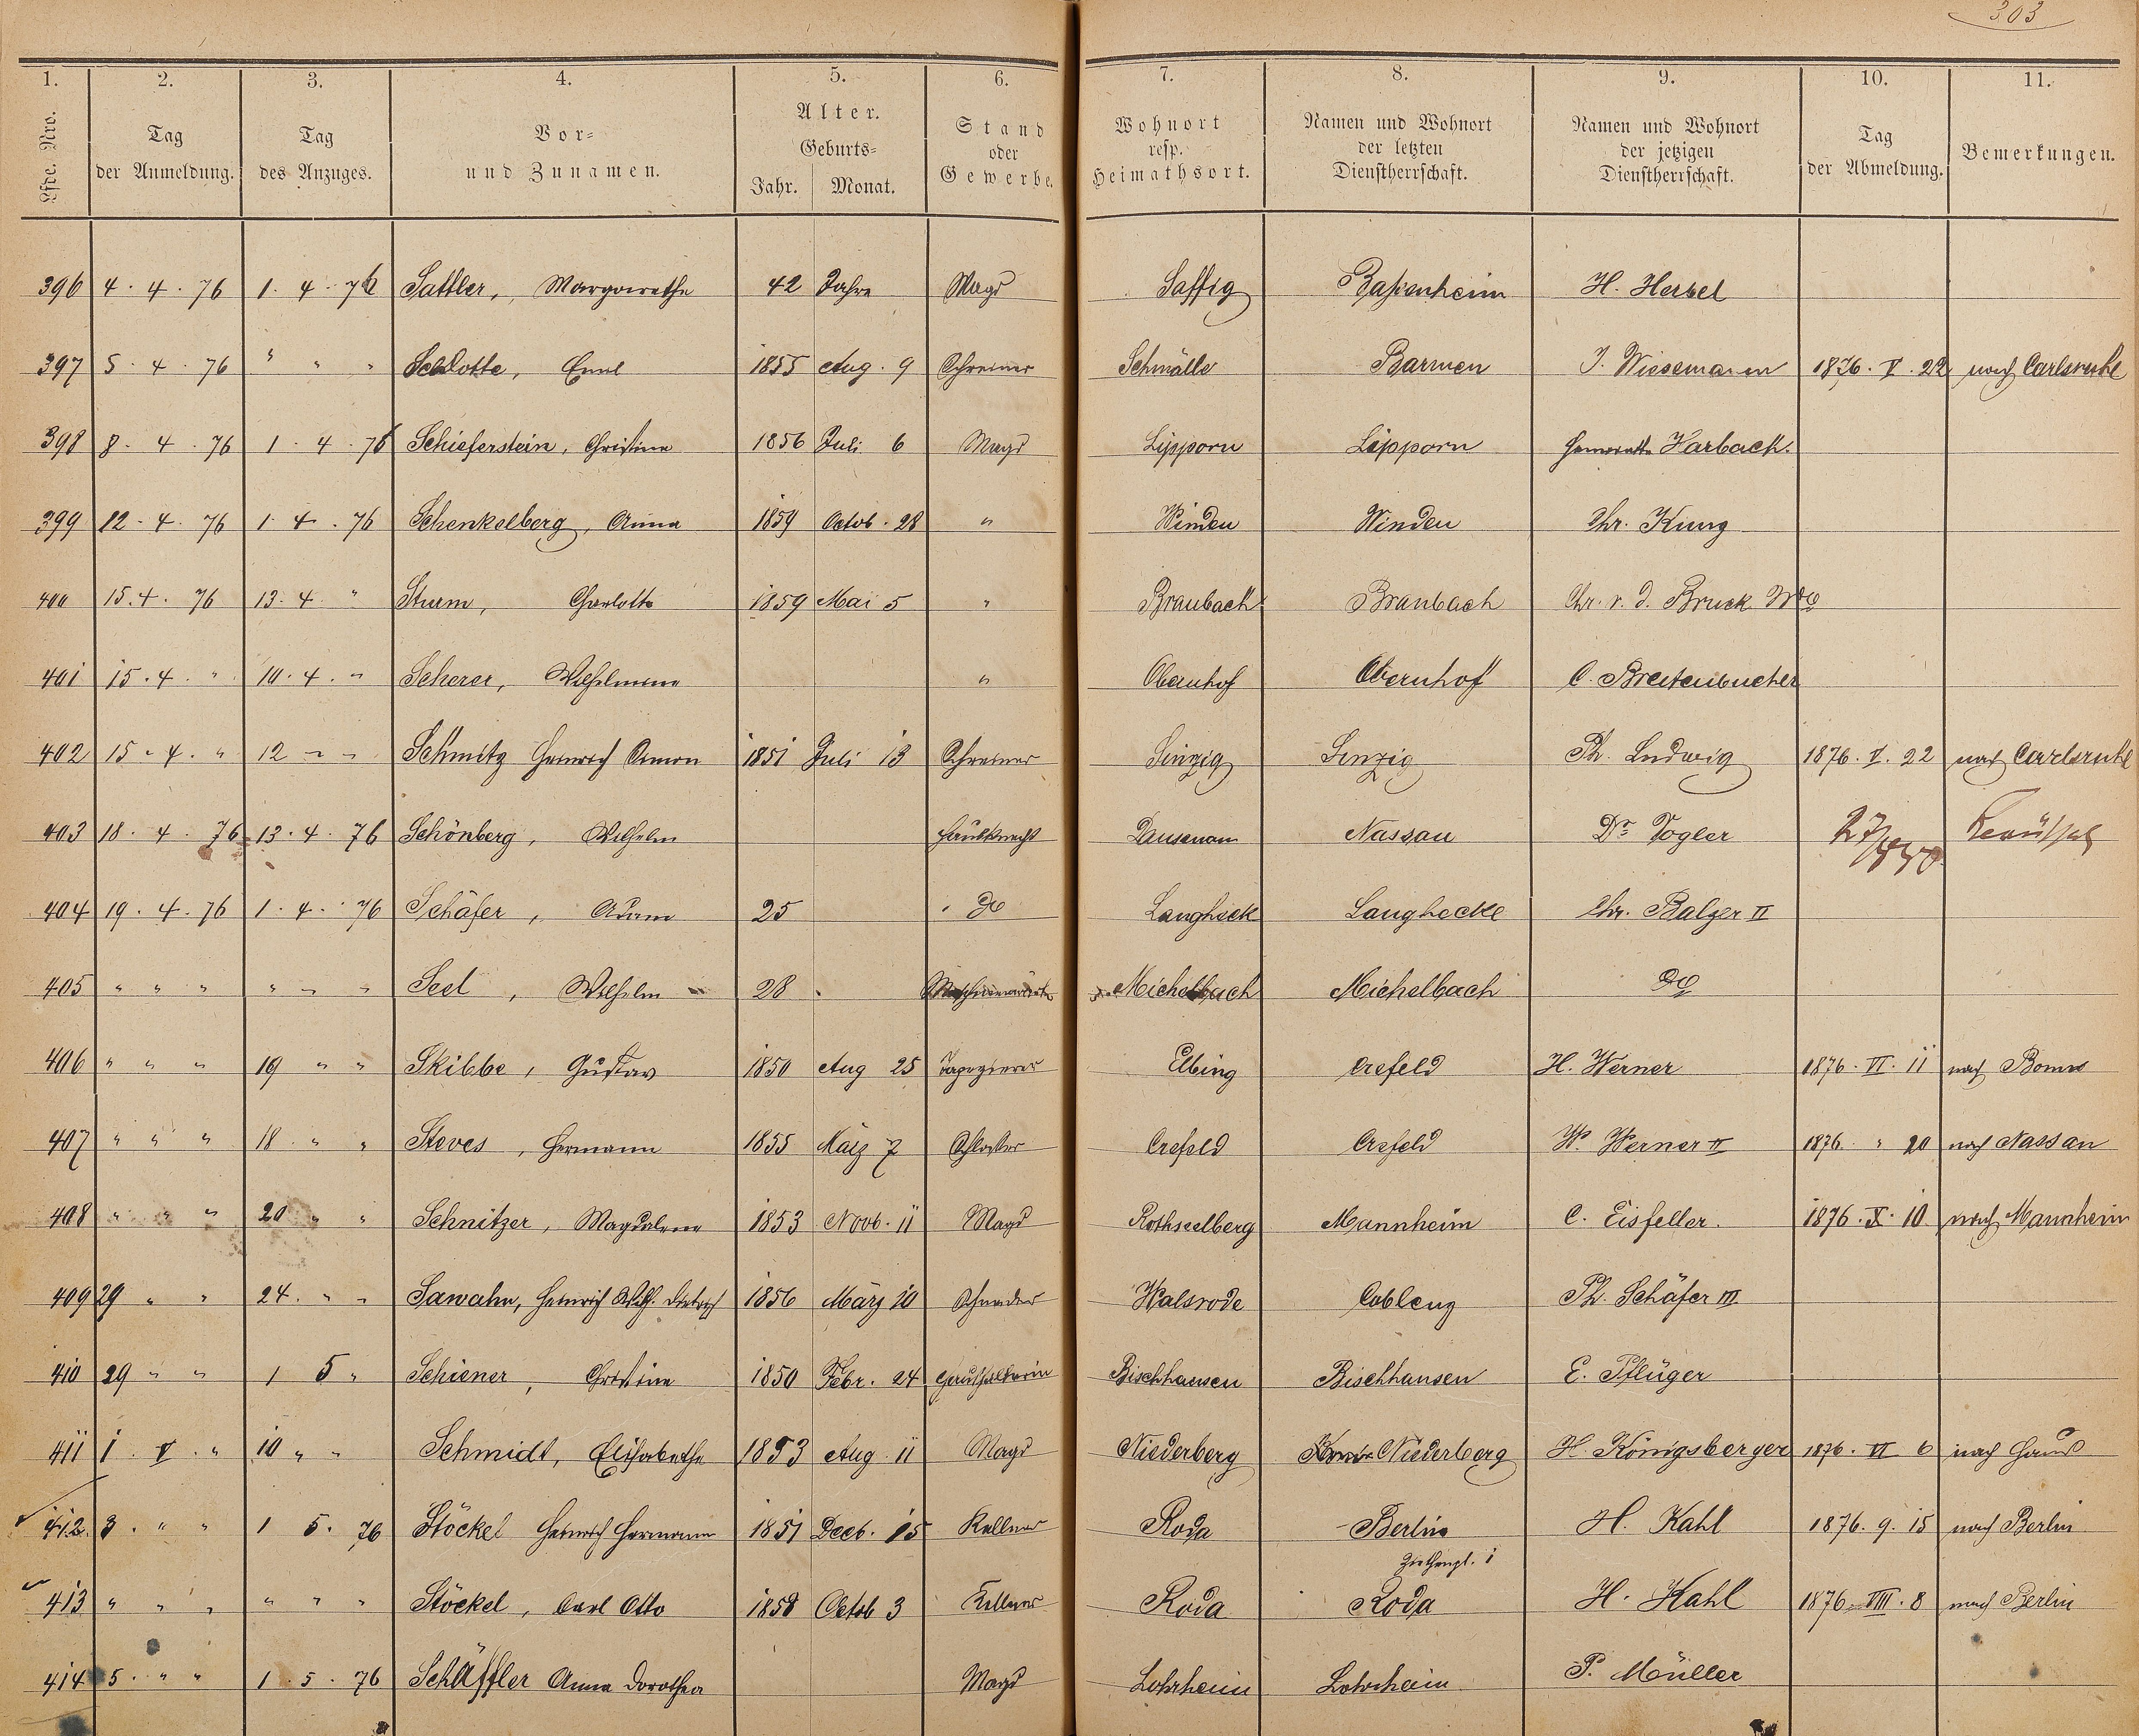 303
1. 2. 3. 4. 5. 6. 7. 8. 9. 10. 11.
Lfde. Nro. Tag der Anmeldung. Tag des Anzuges. Vor- und Zunamen. Alter. Geburts- Jahr. Monat. Stand oder Gewerbe. Wohnort resp. Heimathsort. Namen und Wohnort der letzten Dienstherrschaft. Namen und Wohnort der jetzigen Dienstherrschaft. Tag der Abmeldung. Bemerkungen.
396 4. 4. 76 1. 4. 76 Sattler, Margarethe 42 Jahre Magd Saffig Bassenheim H. Herbel
397 5. 4. 76 " " " Schlotte, Emil 1855 Aug. 9 Schreiner Schmölle Barmen J. Wiesemann 1876. V. 22 nach Carlsruhe
398 8. 4. 76 1. 4. 76 Schieferstein, Christine 1856 Juli 6 Magd Lipporn Lipporn Karbach.
399 12. 4. 76 1. 4. 76 Schenkelberg, Anna 1859 Octob. 28 " Winden Winden Chr. Kunz
400 15. 4. 76 13. 4. " Sturm, Charlotte 1859 Mai 5 " Braubach Braubach Chr. v. d. Bruck Wwe
401 15. 4. " 10. 4. " Scherer, Wilhelmine " Obernhof Obernhof C. Breitenbucher
402 15. 4. " 12 " " Schmitz Heinrich Simon 1851 Juli 13 Schreiner Sinzig Sinzig Ph. Ludwig 1876. V. 22 nach Carlsruhe
403 18. 4. 76 13. 4. 76 Schönberg, Wilhelm Hausknecht Dausenau Nassau Dr. Vogler
404 19. 4. 76 1. 4. 76 Schäfer, Adam 25 do Langheck Langhecke Chr. Balzer II
405 " " " " " " Seel, Wilhelm 28 Michelbach Michelbach do
406 " " " 19 " " Skibbe, Gustav 1850 Aug 25 Tapezierer Elbing Crefeld H. Werner 1876. VI. 11 nach Bonn
407 " " " 18 " " Steves, Hermann 1855 März 7 Schlosser Crefeld Crefeld W. Werner II 1876. " 20 nach Nassau
408 " " " 20 " " Schnitzer, Magdalene 1853 Novb. 11 Magd Rothselberg Mannheim C. Eisfeller. 1876. X. 10 nach Mannheim
409 29 " " 24. " " Sawahn, Heinrich Wilh. Dietrich 1856 März 10 Schneider Walsrode Coblenz Ph. Schäfer III
410 29 " " 1 5 " Schiener, Christine 1850 Febr. 24 Haushälterin Bischhausen Bischhausen E. Pflüger
411 1 V. " 10 " " Schmidt, Elisabethe 1853 Aug 11 Magd Niederberg Niederberg H. Königsberger 1876. VI 6 nach Haus
412. 3. " " 1 5. 76 Stöckel Heinrich Hermann 1851 Decb. 15 Kellner Roda Berlin H. Kahl 1876. 9. 15 nach Berlin
413 " " " " " " Stöckel, Carl Otto 1858 Octob 3 Kellner Roda Roda H. Kahl 1876. VIII. 8 nach Berlin
414 5. " " 1. 5. 76 Schäffler Anna Dorothea Magd Lohrheim Lohrheim P. Müller